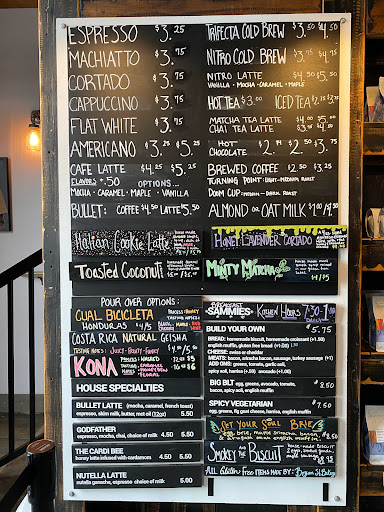 ESPRESSO $3.25
MACHIATTO $3.75
CORTADO $3.75
CAPPUCCINO $3.75
FLAT WHITE $3.75
AMERICANO $3.25 $5.25
CAFE LATTE $4.25 $5.25
FLAVORS +.50 OPTIONS...
MOCHA • CARAMEL • MAPLE • VANILLA
BULLET: COFFEE $4.50 LATTE $5.50
TRIFECTA COLD BREW $3.50 $4.50
NITRO COLD BREW $3.75 $4.75
NITRO LATTE $4.50 $5.50
VANILLA • MOCHA • CARAMEL • MAPLE
HOT TEA $3.00 ICED TEA $2.75 $3.75
MATCHA TEA LATTE $4.00 $5.00
CHAI TEA LATTE
HOT CHOCOLATE $2.00 $2.50 $3.75
BREWED COFFEE $2.50 $3.25
TURNING POINT: LIGHT-MEDIUM ROAST
DOOM CUP DARK ROAST
ALMOND OR OAT MILK $1.00
Italian Cookie Latte
Toasted Coconut
HONEY LAVENDER CORTADO
MINTY MATCHA
POUR OVER OPTIONS:
CUAL BICICLETA
HONDURAS
COSTA RICA NATURAL GEISHA
TASTING NOTES: JUICY • FRUITY • FUNKY
KONA
HOUSE SPECIALTIES
BULLET LATTE (mocha, caramel, french toast)
espresso, skim milk, butter, mct oil (12oz) 5.50
GODFATHER
espresso, mocha, chai, choice of milk 4.50 5.50
THE CARDI BEE
honey latte infused with cardamom 4.50 5.50
NUTELLA LATTE
nutella ganache, espresso choice of milk 5.00
BREAKFAST
SAMMIES KITCHEN HOURS 7:30-1:00
BUILD YOUR OWN $5.75
BREAD: homemade biscuit, homemade croissant (+1.00)
english muffin, gluten free bread (+1.00)
CHEESE: swiss or cheddar
MEATS: bacon, sriracha bacon, sausage, turkey sausage (+1)
ADD ONS: greens, tomato, garlic aioli,
spicy aoli, harrisa (+.50) avocado (+1.00)
BIG BLT egg, greens, avocado, tomato, $8.50
bacon, spicy aoli, english muffin
SPICY VEGETARIAN $7.50
egg, greens, fig goat cheese, harrisa, english muffin
GET YOUR SOUL BRIE
SMOKEY THE BISCUIT
ALL Gluten Free ITEMS MADE BY: